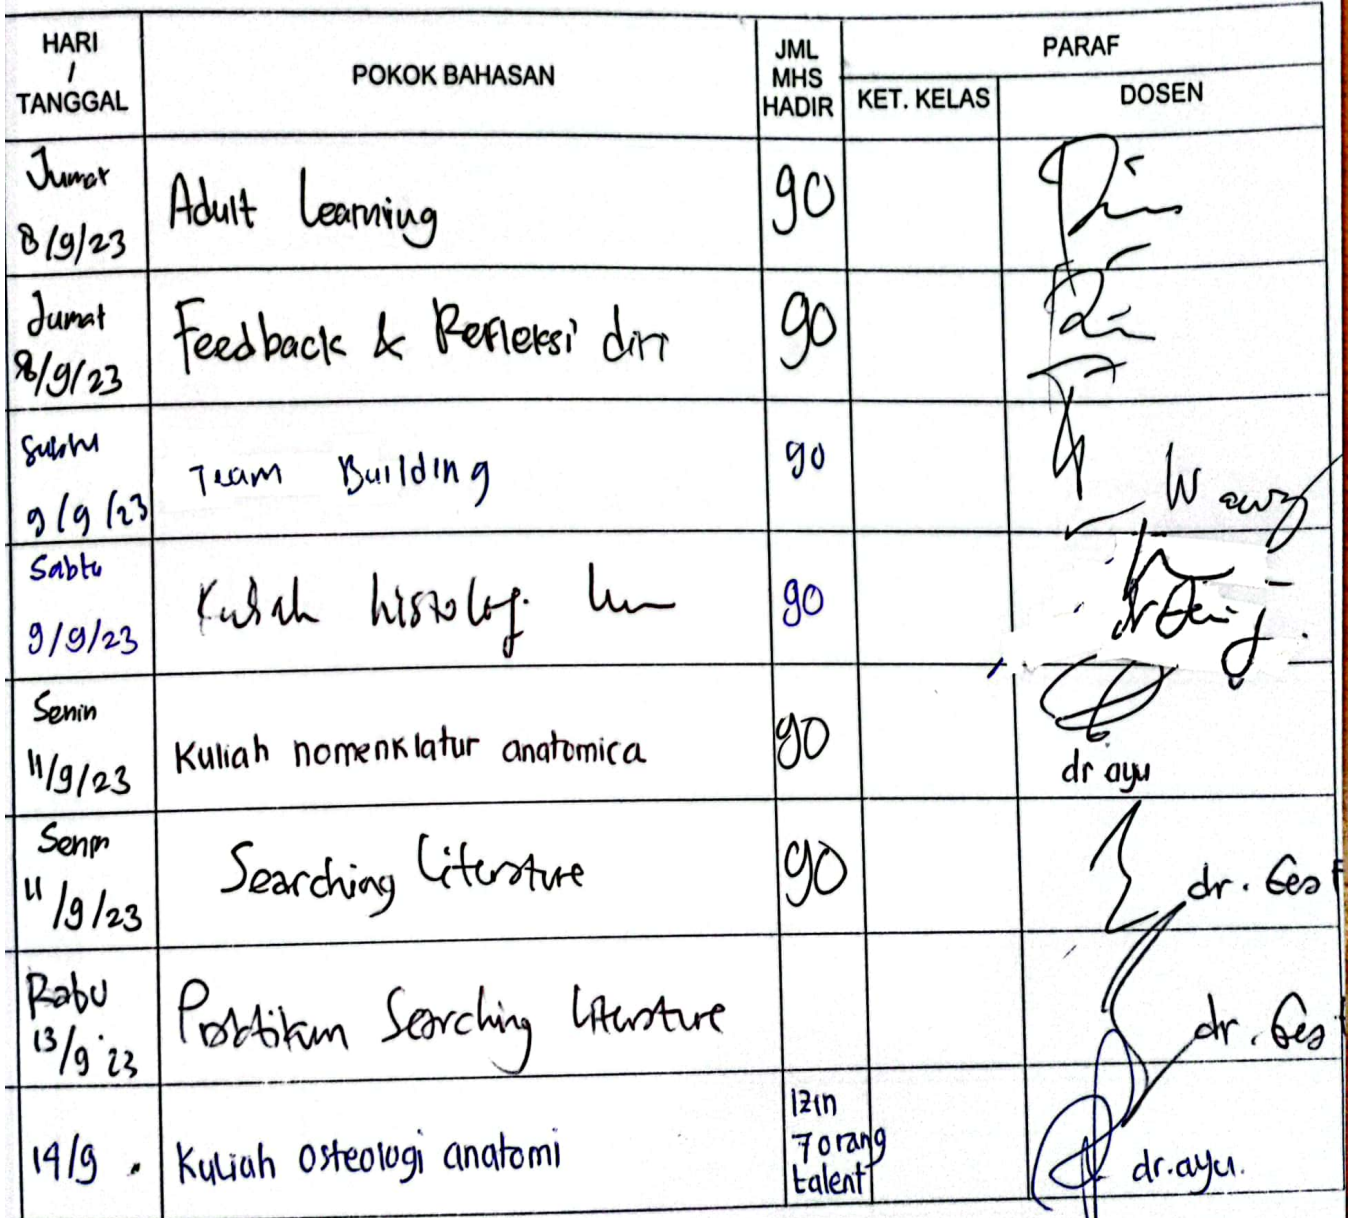 HARI
/
TANGGAL
POKOK BAHASAN
JML
MHS
HADIR
PARAF
KET. KELAS
DOSEN
Jumat
8/9/23
Adult Learning
90
Jumat
8/9/23
Feedback & Refleksi diri
90
9/9/23
Team Building
90
Sabtu
9/9/23
Kuliah histologi
90
Senin
11/9/23
Kuliah nomenklatur anatomica
90
dr ayu
Senin
11/9/23
Searching Literature
90
dr.
Rabu
13/9 23
Praktikum Searching Literature
dr.
14/9
Kuliah osteologi anatomi
Izin
7 orang
talent
dr. ayu.